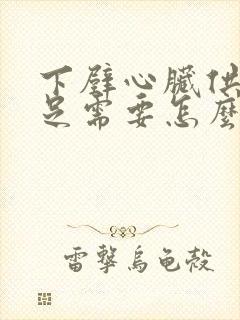 下壁心臟供
足需要怎麼
雷擊烏龜殼